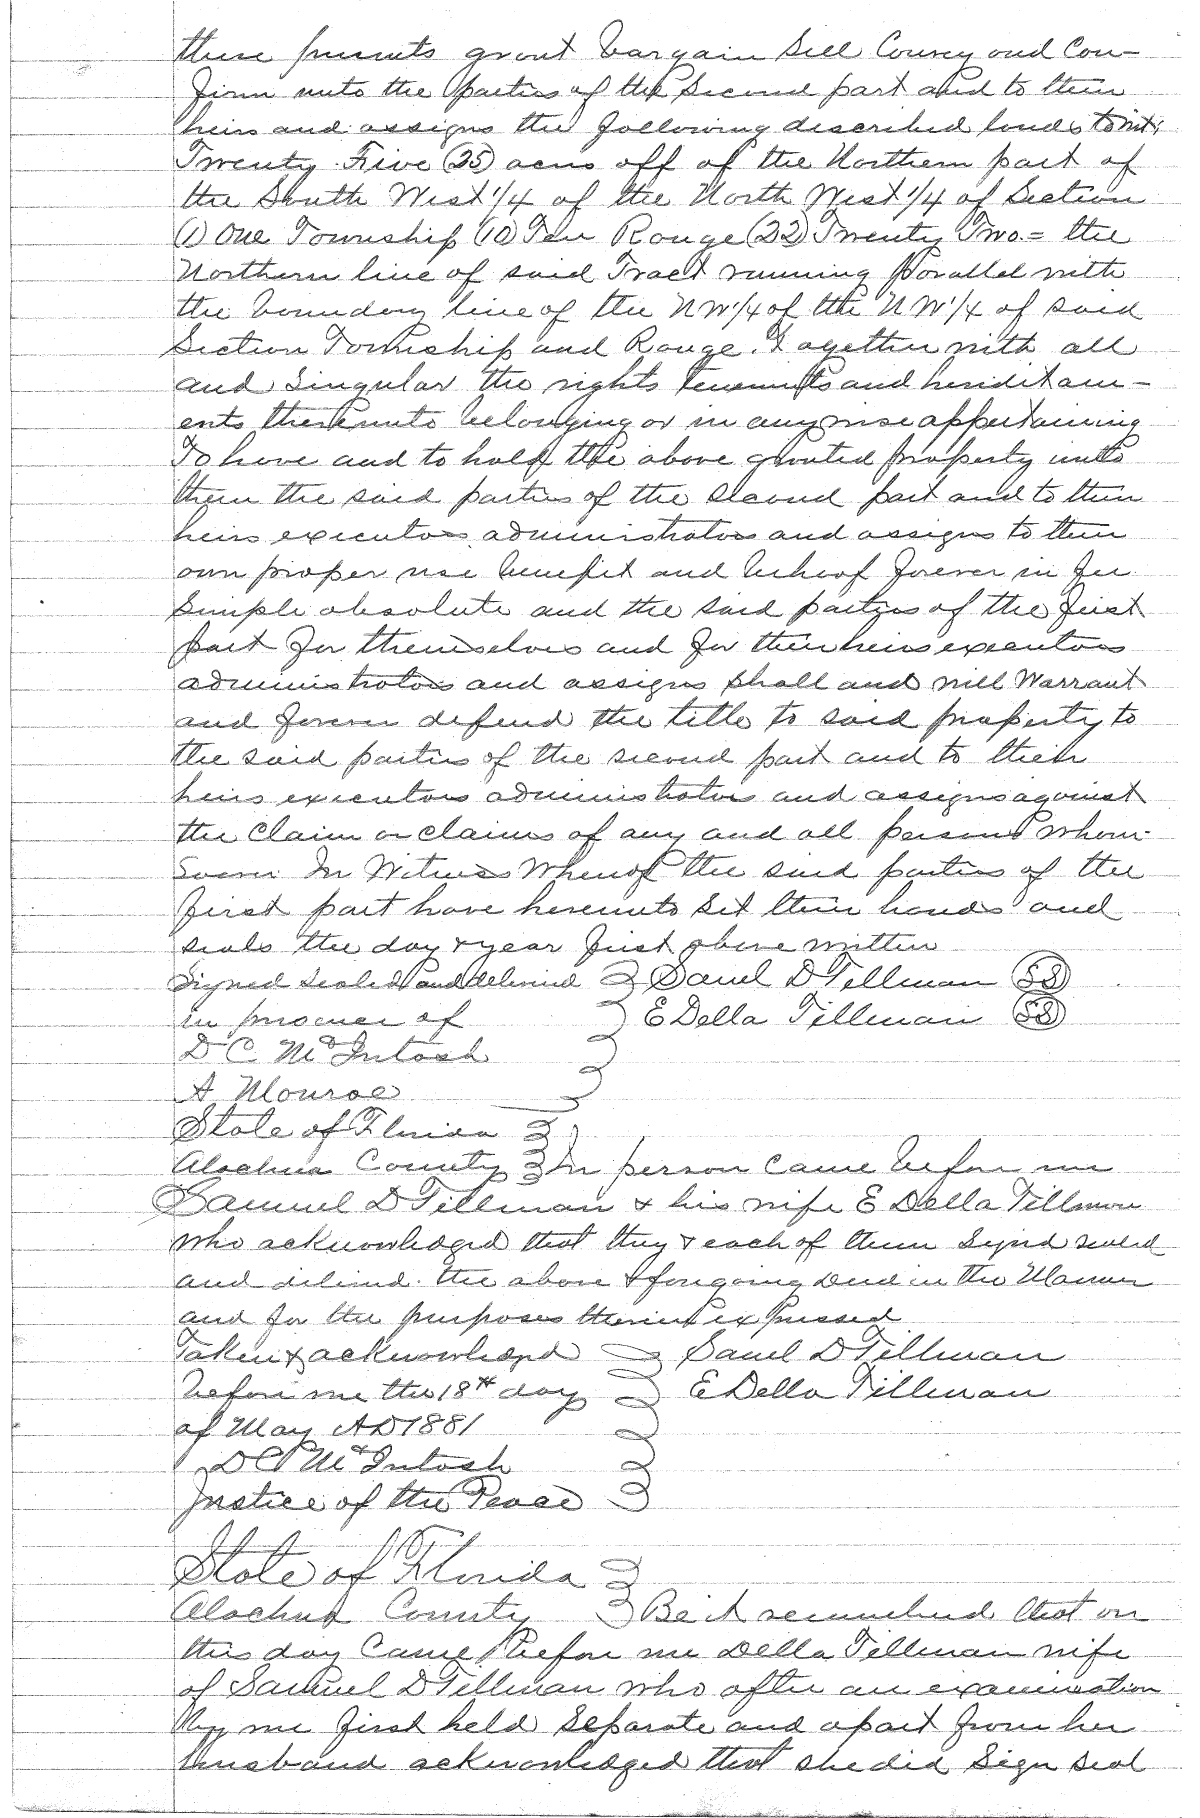 these presents grant bargain Sell Convey and Con-
firm unto the parties of the Second part and to their
heirs and assigns the following described lands towit;
Twenty Five (25) acres off of the Northern part of
the South West 1/4 of the North West 1/4 of Section
(1) One Township (10) Ten Range (22) Twenty Two = the
Northern line of said Tract running parallel with
the boundery line of the NW 1/4 of the NW 1/4 of said
Section Township and Range. Together with all
and Singular the rights tenements and heriditam-
ents thereunto belonging or in any wise appertaining
To have and to hold the above granted property unto
them the said parties of the second part and to their
heirs executors administrators and assigns to their
own proper use benefit and behoof forever in fee
Simple absolute and the said parties of the first
part for themselves and for their heirs executors
administrators and assigns shall and will Warrant
and forever defend the title to said property to
the said parties of the second part and to their
heirs executors administrators and assigns against
the Claim or claims of any and all persons whom-
soever In Witness Whereof the said parties of the
first part have hereunto set their hands and
seals the day & year first above written
Signed sealed and delivered } Saml D Tillman (SS)
in presence of } E Della Tillman (SS)
D C McIntosh
A Monroe
State of Florida }
Alachua County } In person came before me
Samuel D Tillman & his wife E Della Tillman
who acknowledged that they & each of them signd sealed
and deliverd the above & foregoing deed in the Manner
and for the purposes therein expressed
Taken & acknowledged } Saml D Tillman
before me the 18th day } E Della Tillman
of May AD 1881
D C McIntosh
Justice of the Peace }
State of Florida }
Alachua County } Be it remembered that on
this day Came before me Della Tillman wife
of Samuel D Tillman who after an examination
by me first held Separate and apart from her
husband acknowledged that she did Sign seal